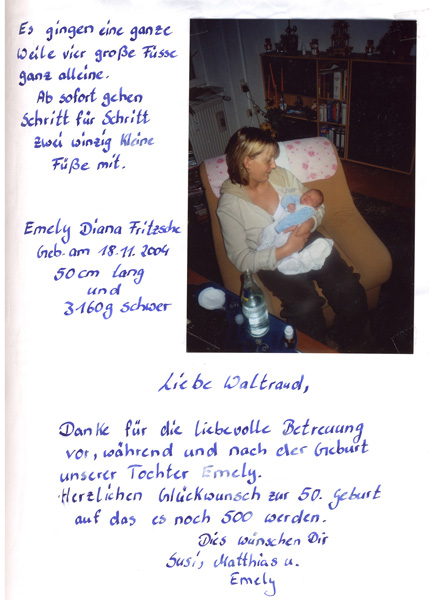 Es gingen eine ganze
Weile vier große Füsse
ganz alleine.
Ab sofort gehen
Schritt für Schritt
zwei winzig kleine
Füße mit.
Emely Diana Fritzsche
Geb. am 18.11.2004
50 cm lang
und
3160g schwer
Liebe Waltraud,
Danke für die liebevolle Betreuung
vor, während und nach der Geburt
unserer Tochter Emely.
Herzlichen Glückwunsch zur 50. Geburt
auf das es noch 500 werden.
Dies wünschen Dir
Susi, Matthias u.
Emely